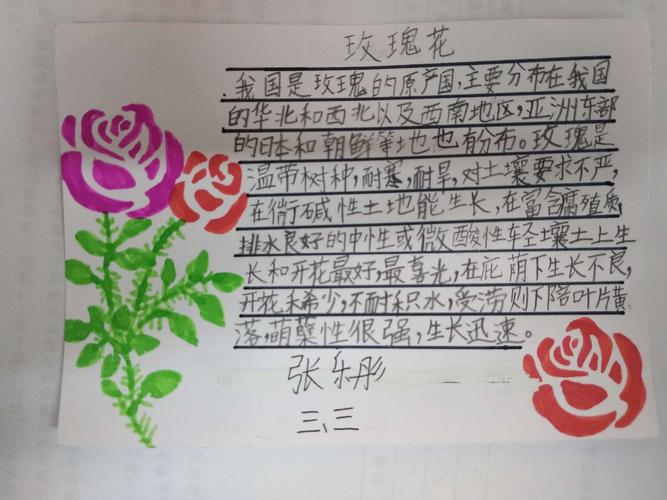 玫瑰花
我国是玫瑰的原产国,主要分布在我国
的华北和西北以及西南地区,亚洲东部
的日本和朝鲜等地也有分布。玫瑰是
温带树种,耐寒,耐旱,对土壤要求不严,
在微碱性土地能生长,在富含腐殖质
排水良好的中性或微酸性轻壤土上生
长和开花最好,最喜光,在庇荫下生长不良,
开花稀少,不耐积水,受涝则下陪叶片黄
落,萌蘖性很强,生长迅速。
张乐彤
三、三